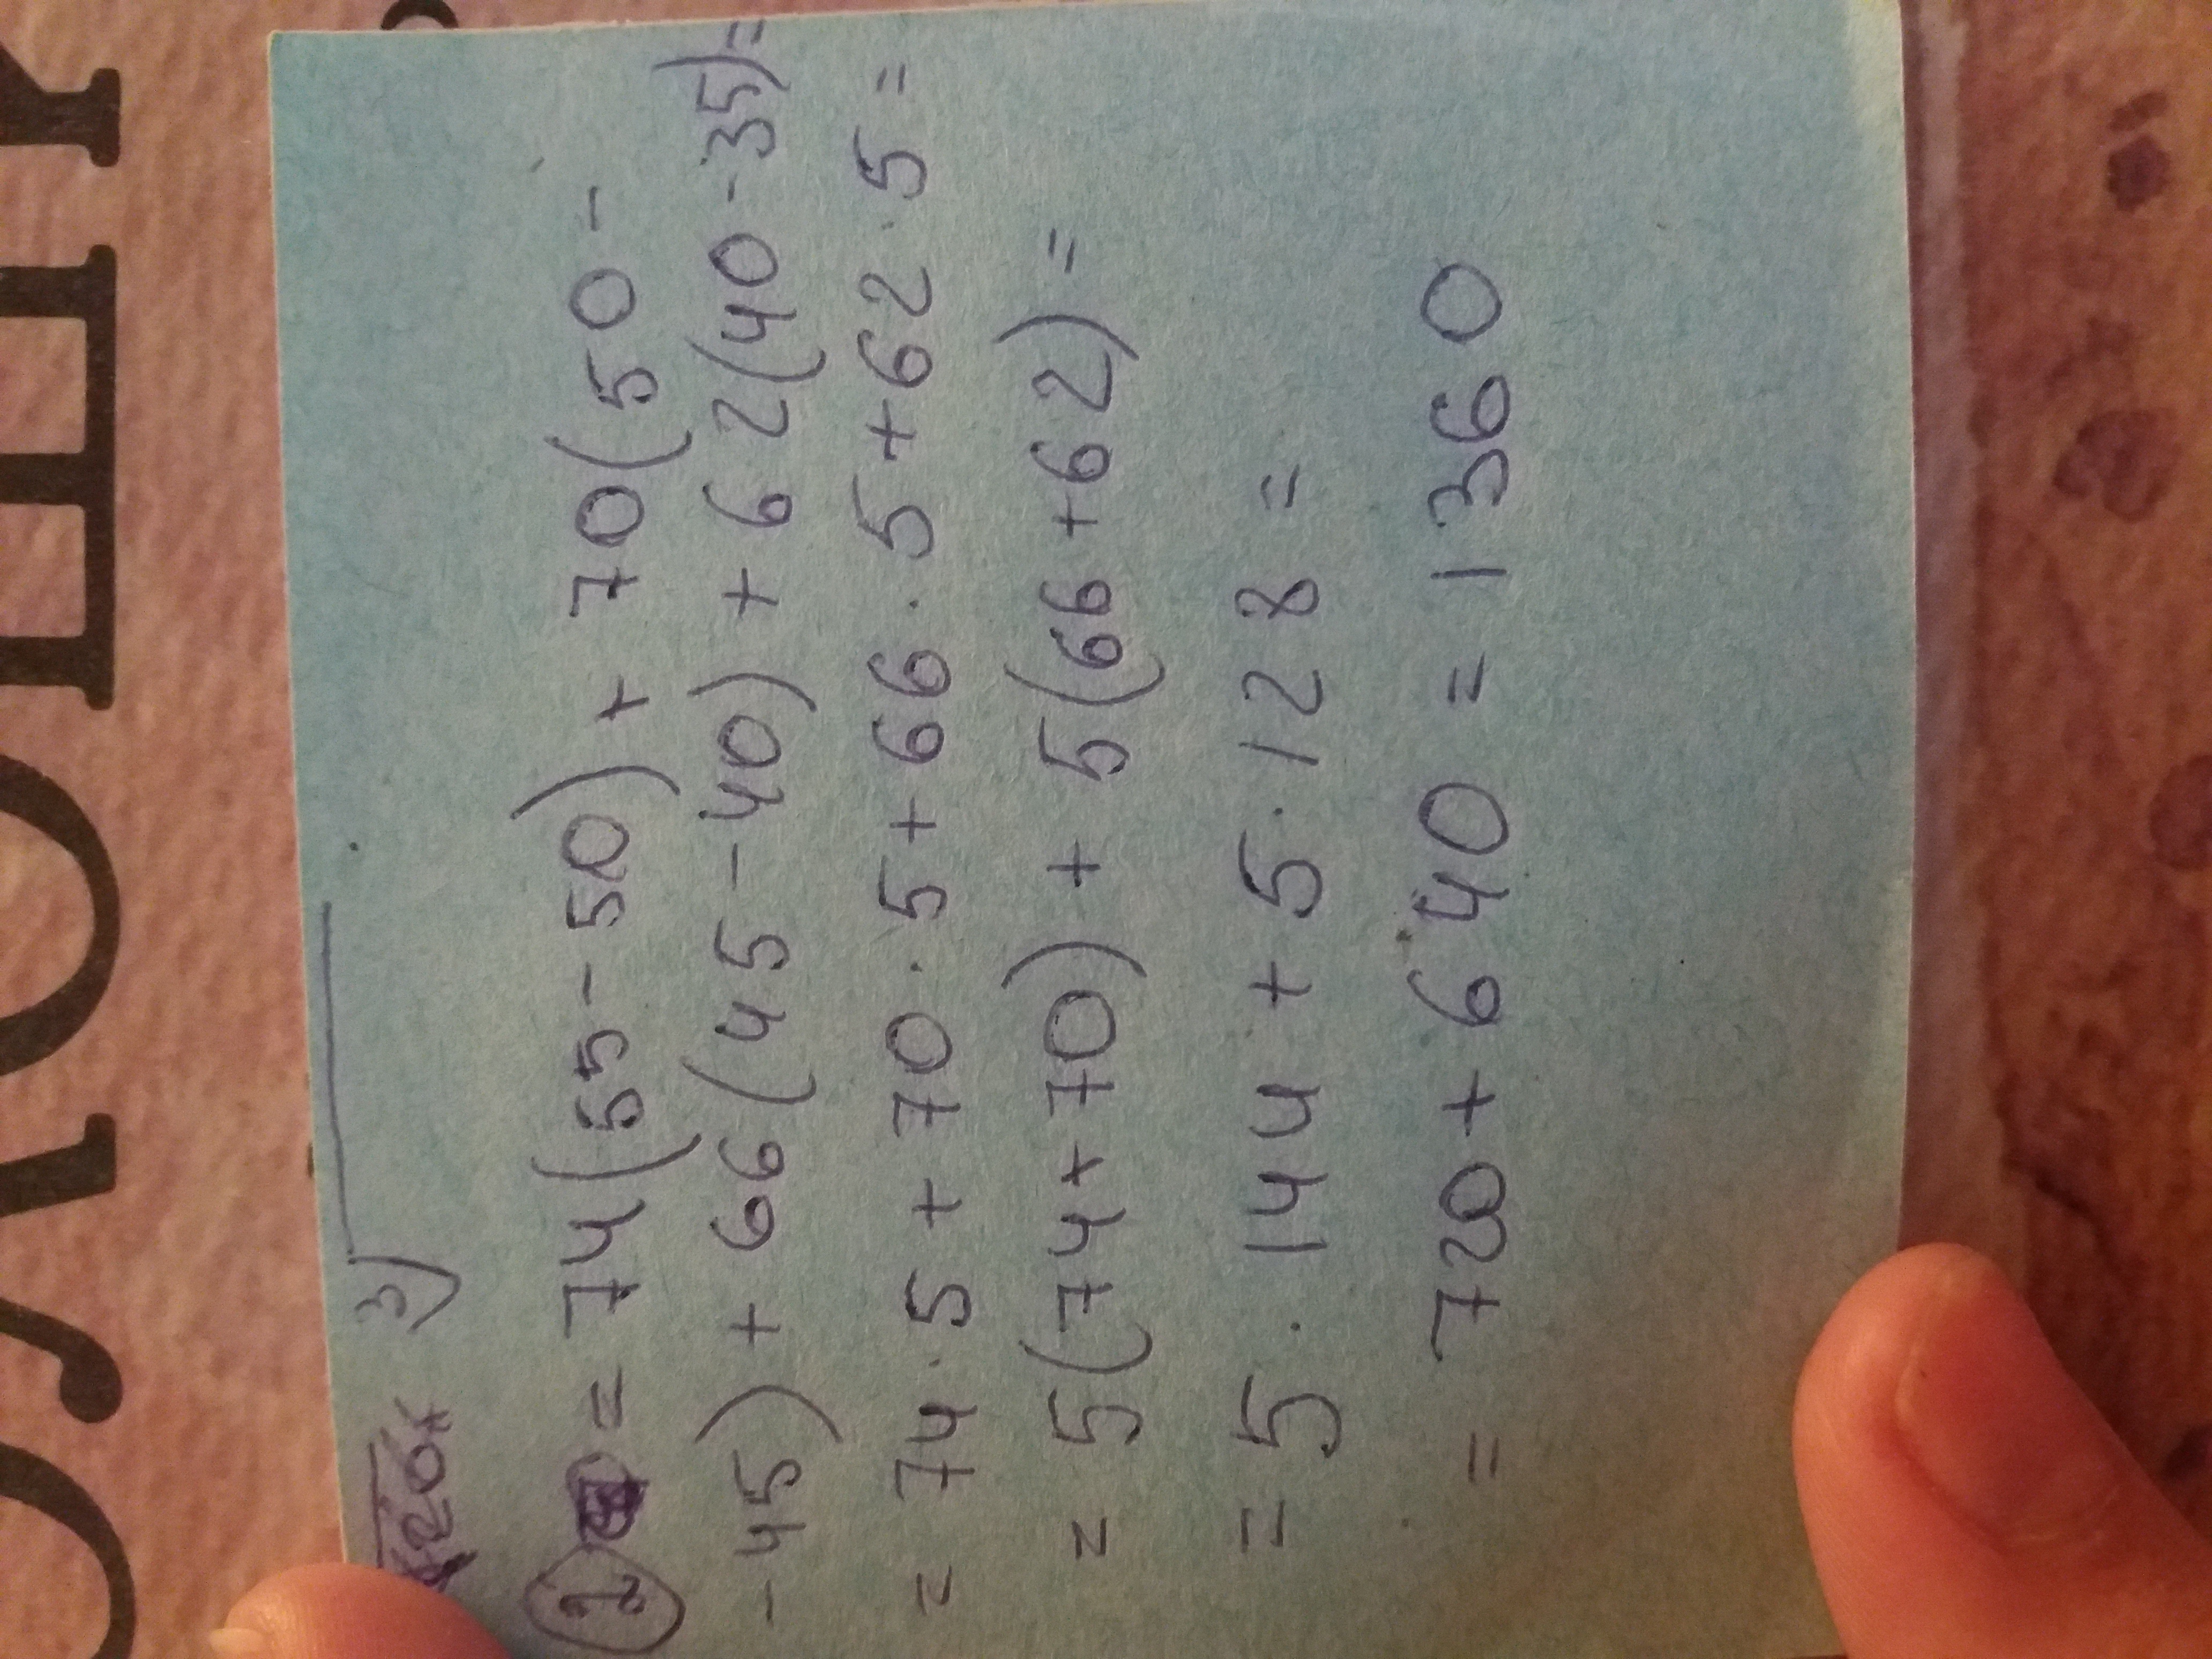 3)
2 = 74(55-50) + 70(50-
-45) + 66(45-40) + 62(40-35)=
= 74·5 + 70·5 + 66·5 + 62·5 =
= 5(74+70) + 5(66+62) =
= 5·144 + 5·128 =
= 720 + 640 = 1360